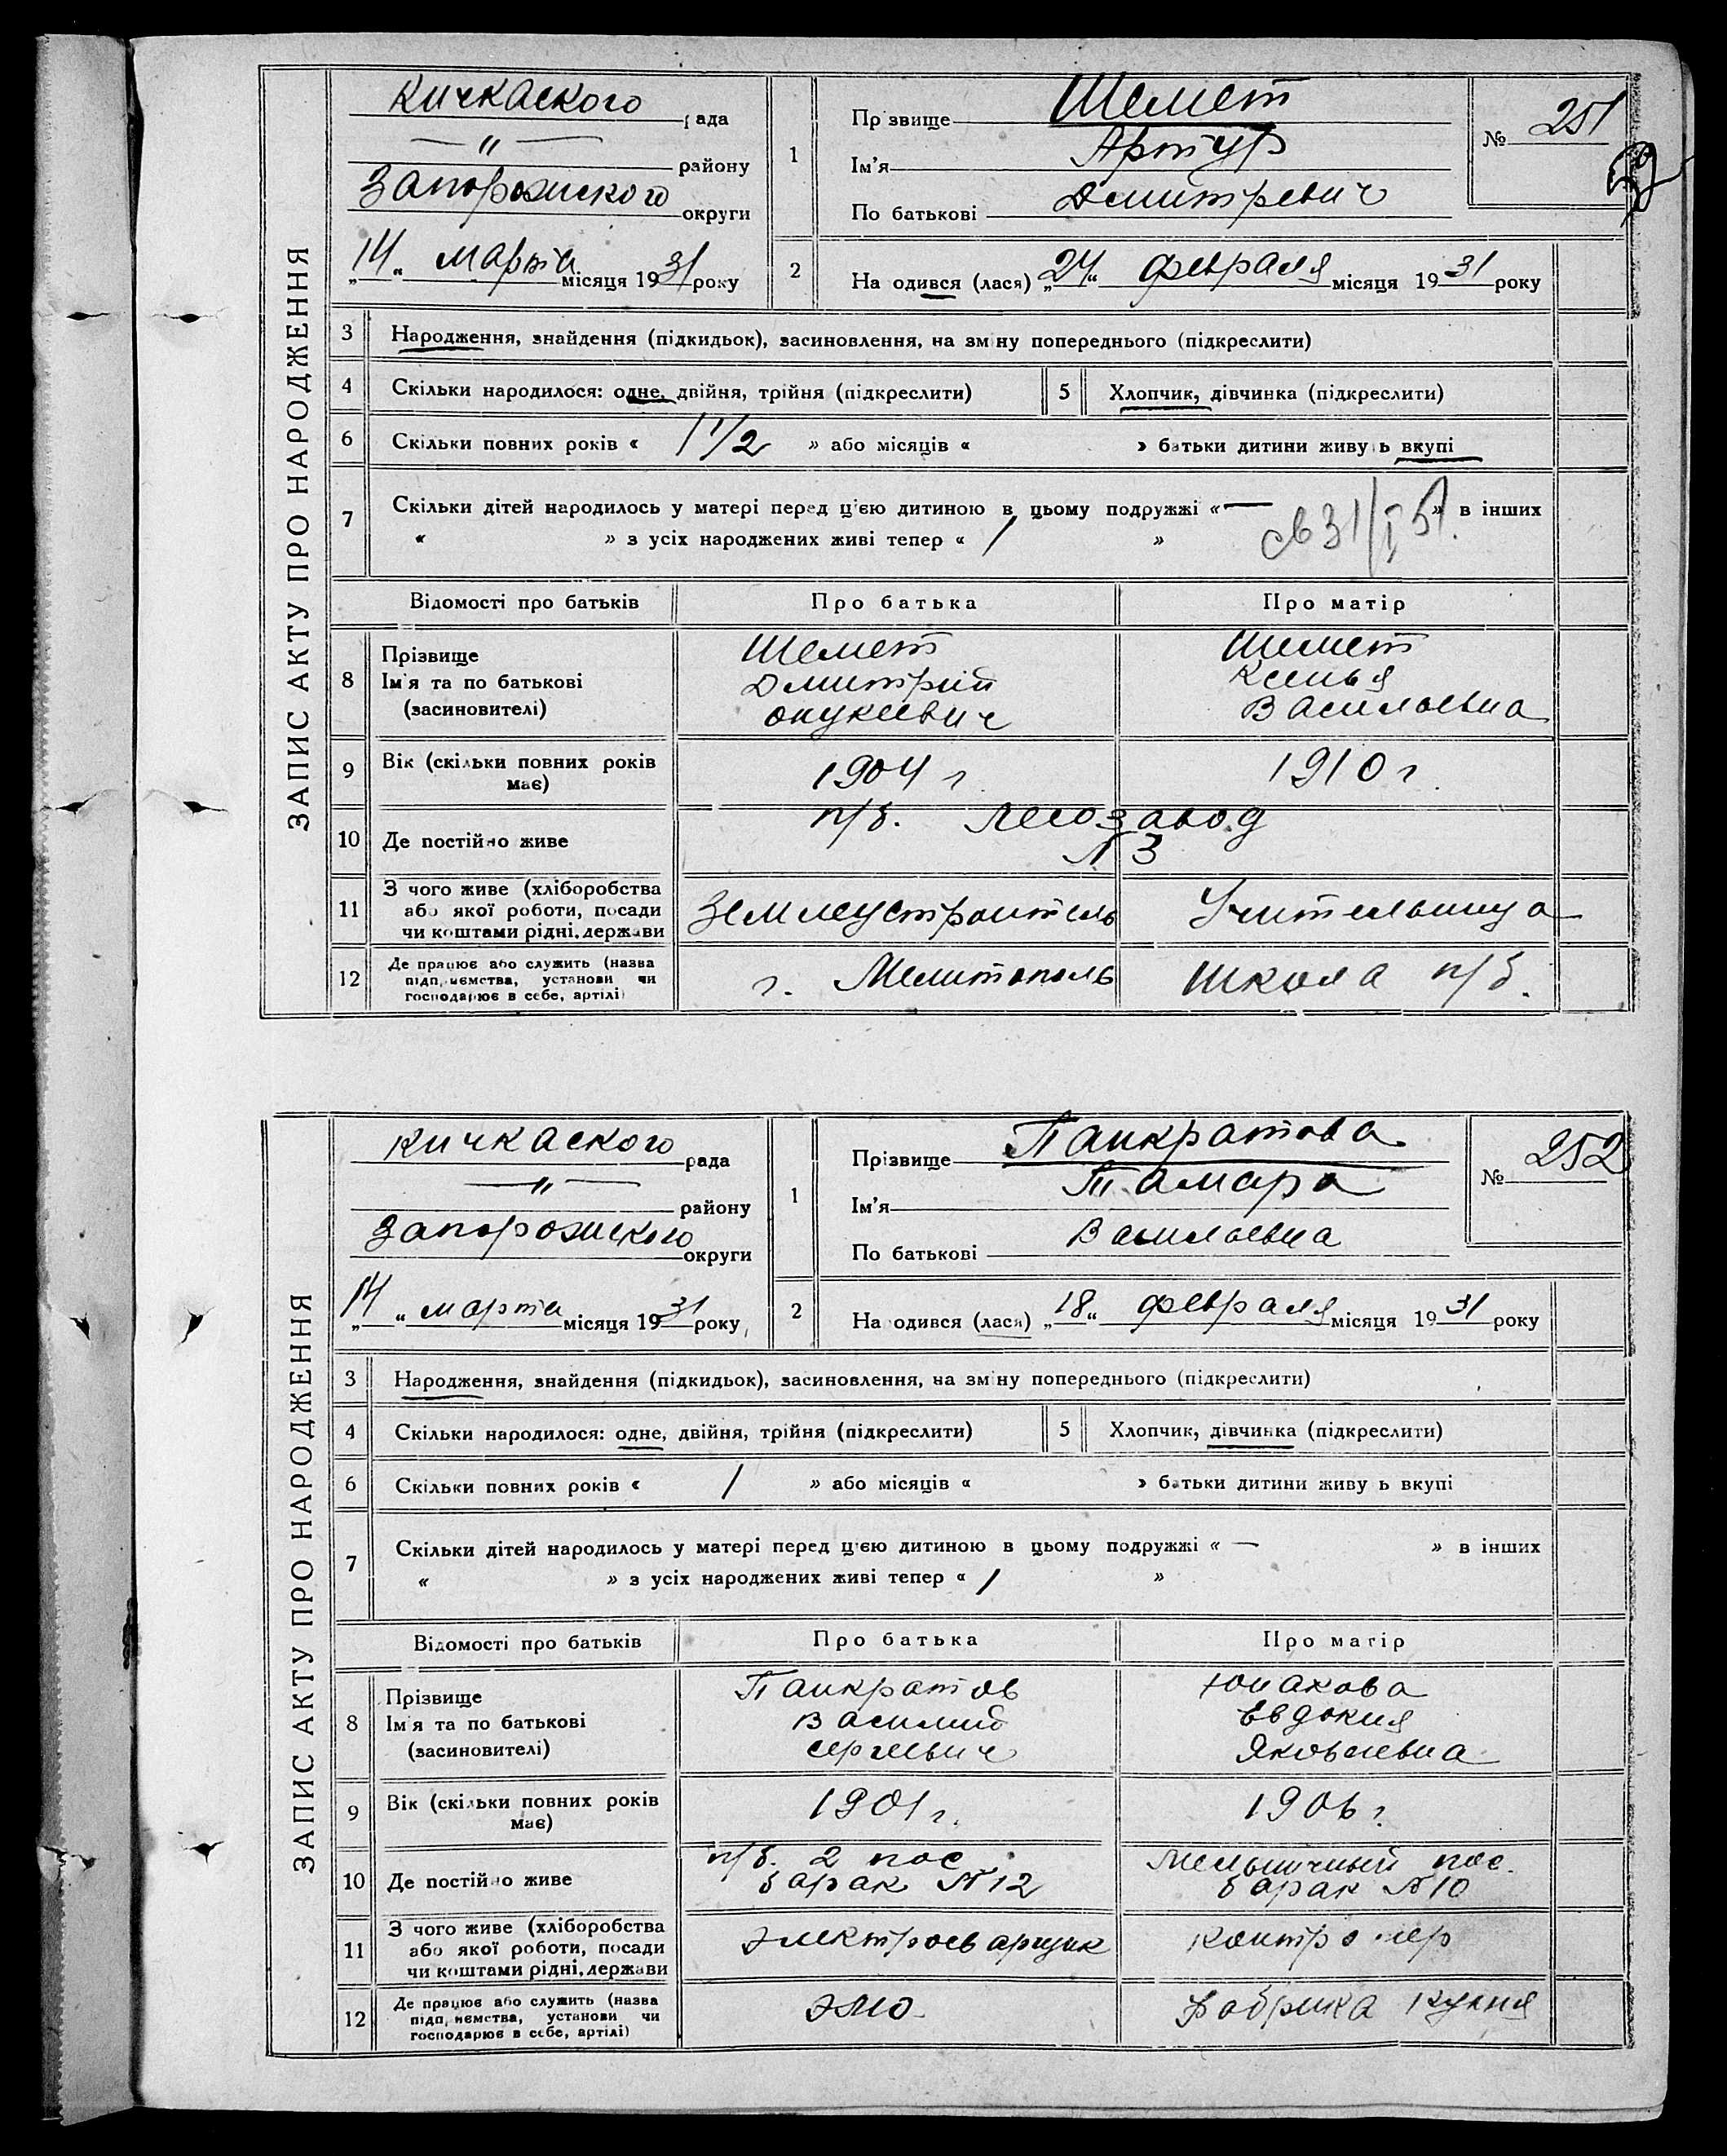 ЗАПИС АКТУ ПРО НАРОДЖЕННЯ
Кичкаского рада
— „ — району
Запорожского округи
„14“ марта місяця 1931 року
1
Прізвище Шемет
Ім'я Артур
По батькові Дмитревич
№ 251
2
На одився (лася) „24“ февраля місяця 1931 року
3 Народження, знайдення (підкидьок), засиновлення, на зміну попереднього (підкреслити)
4 Скільки народилося: одне, двійня, трійня (підкреслити) 5 Хлопчик, дівчинка (підкреслити)
6 Скільки повних років « 1 1/2 » або місяців « » батьки дитини живу ь вкупі
7 Скільки дітей народилось у матері перед ц'єю дитиною в цьому подружжі « — » в інших
« » з усіх народжених живі тепер « 1 »
св 31/I 51.
Відомості про батьків Про батька Про матір
8 Прізвище Шемет Шемет
Ім'я та по батькові Дмитрий Ксенья
(засиновителі) Васильевна
9 Вік (скільки повних років має) 1904 г. 1910 г.
10 Де постійно живе п/б. Лесозавод
№ 3
11 З чого живе (хліборобства
або якої роботи, посади Землеустроитель Учительница
чи коштами рідні, держави
12 Де працює або служить (назва
підп, иємства, установи чи г. Мелитополь Школа п/б.
господарює в себе, артілі)
ЗАПИС АКТУ ПРО НАРОДЖЕННЯ
Кичкаского рада
— „ — району
Запорожского округи
„14“ марта місяця 1931 року
1
Прізвище Панкратова
Ім'я Тамара
По батькові Васильевна
№ 252
2
На одився (лася) „18“ февраля місяця 1931 року
3 Народження, знайдення (підкидьок), засиновлення, на зміну попереднього (підкреслити)
4 Скільки народилося: одне, двійня, трійня (підкреслити) 5 Хлопчик, дівчинка (підкреслити)
6 Скільки повних років « 1 » або місяців « » батьки дитини живу ь вкупі
7 Скільки дітей народилось у матері перед ц'єю дитиною в цьому подружжі « — » в інших
« » з усіх народжених живі тепер « 1 »
Відомості про батьків Про батька Про матір
8 Прізвище Панкратов Юнакова
Ім'я та по батькові Василий Евдокия
(засиновителі) Сергеевич Яковлевна
9 Вік (скільки повних років має) 1901 г. 1906 г.
10 Де постійно живе п/б. 2 пос. Мельничный пос.
барак № 12 барак № 10
11 З чого живе (хліборобства
або якої роботи, посади Электросварщик контролер
чи коштами рідні, держави
12 Де працює або служить (назва
підп, иємства, установи чи ЭМО Фабрика кухня
господарює в себе, артілі)